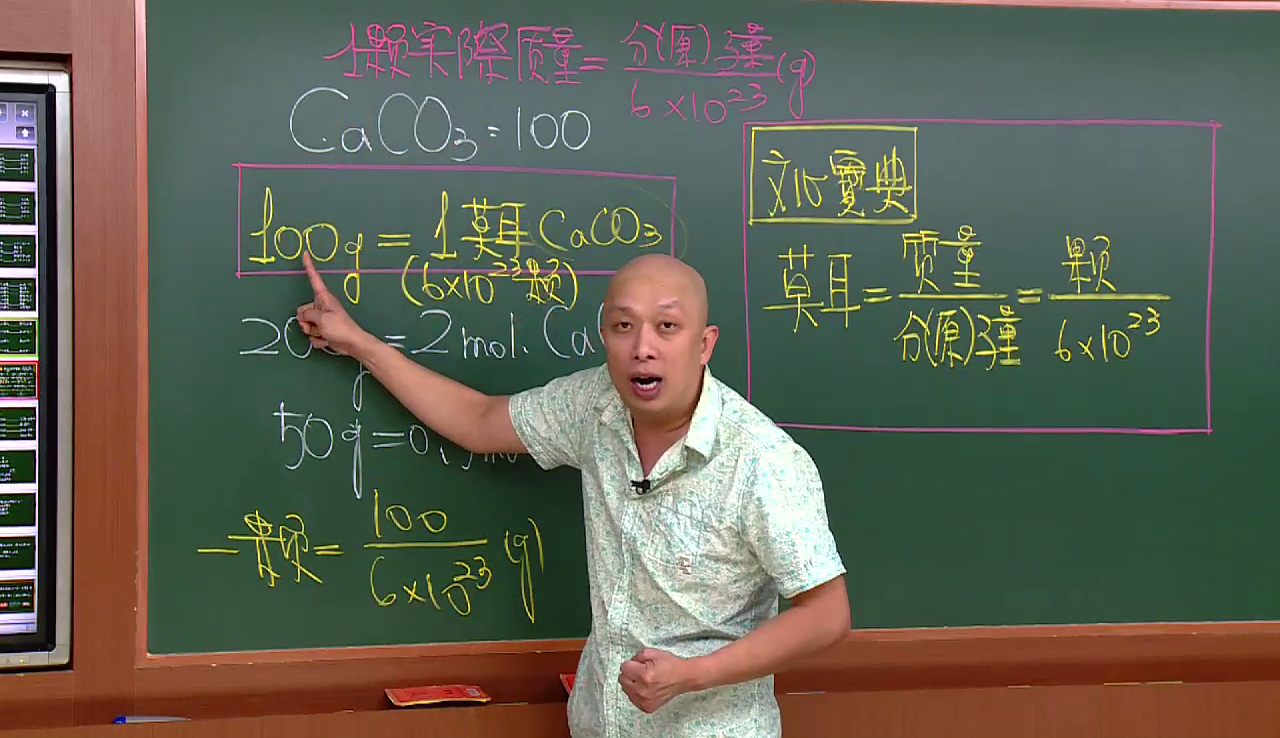 1颗实際质量=分(原)子量/6×10²³(g)
CaCO₃=100
100g=1莫耳CaCO₃
(6×10²³颗)
=2mol.Ca
50g=0.5mo
一颗=100/6×10²³(g)
寶典
莫耳=质量/分(原)子量=颗/6×10²³